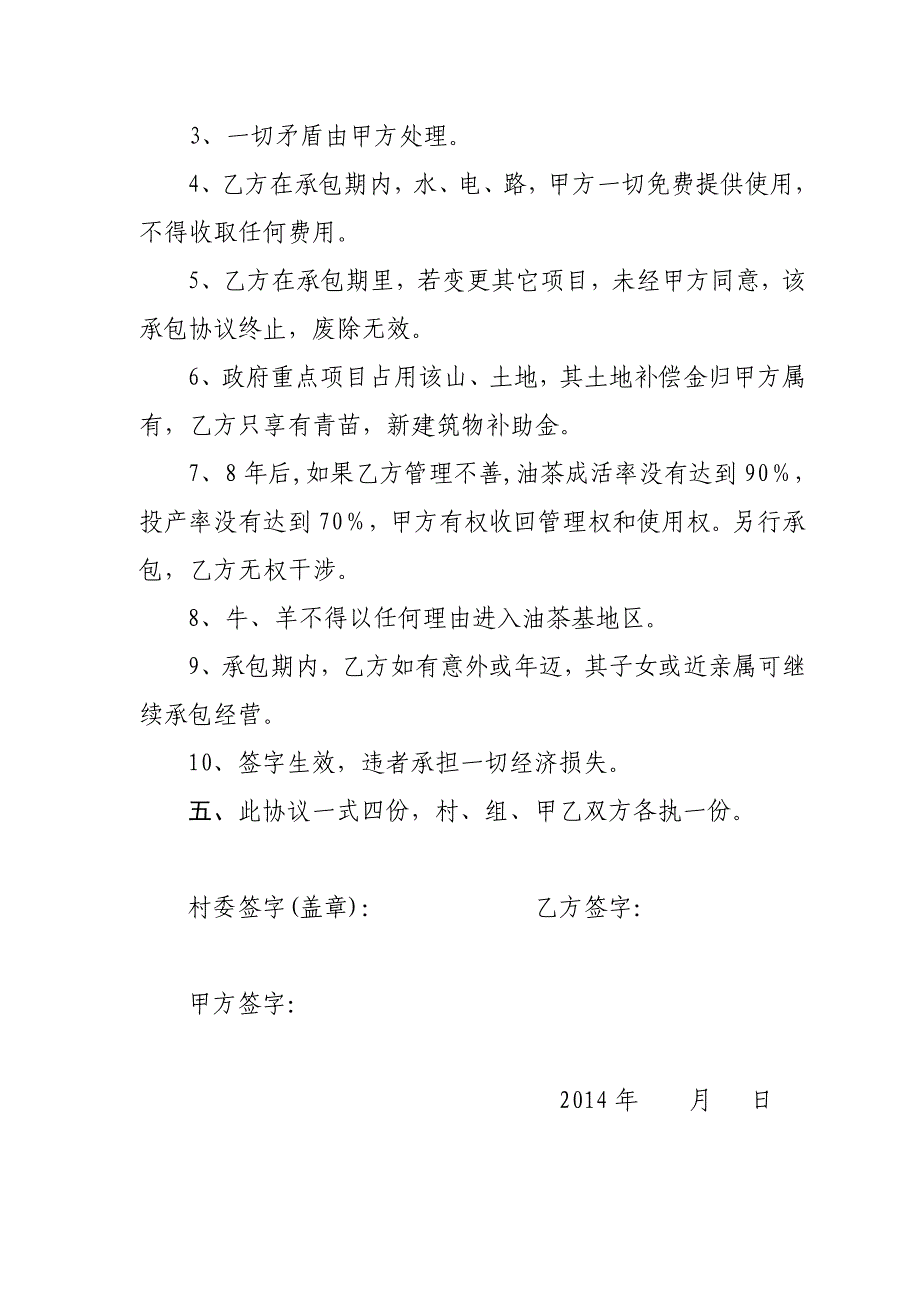 3、一切矛盾由甲方处理。
4、乙方在承包期内，水、电、路，甲方一切免费提供使用，
不得收取任何费用。
5、乙方在承包期里，若变更其它项目，未经甲方同意，该
承包协议终止，废除无效。
6、政府重点项目占用该山、土地，其土地补偿金归甲方属
有，乙方只享有青苗，新建筑物补助金。
7、8年后,如果乙方管理不善,油茶成活率没有达到90%，
投产率没有达到70%，甲方有权收回管理权和使用权。另行承
包，乙方无权干涉。
8、牛、羊不得以任何理由进入油茶基地区。
9、承包期内，乙方如有意外或年迈，其子女或近亲属可继
续承包经营。
10、签字生效，违者承担一切经济损失。
五、此协议一式四份，村、组、甲乙双方各执一份。
村委签字(盖章)： 乙方签字：
甲方签字：
2014年 月 日